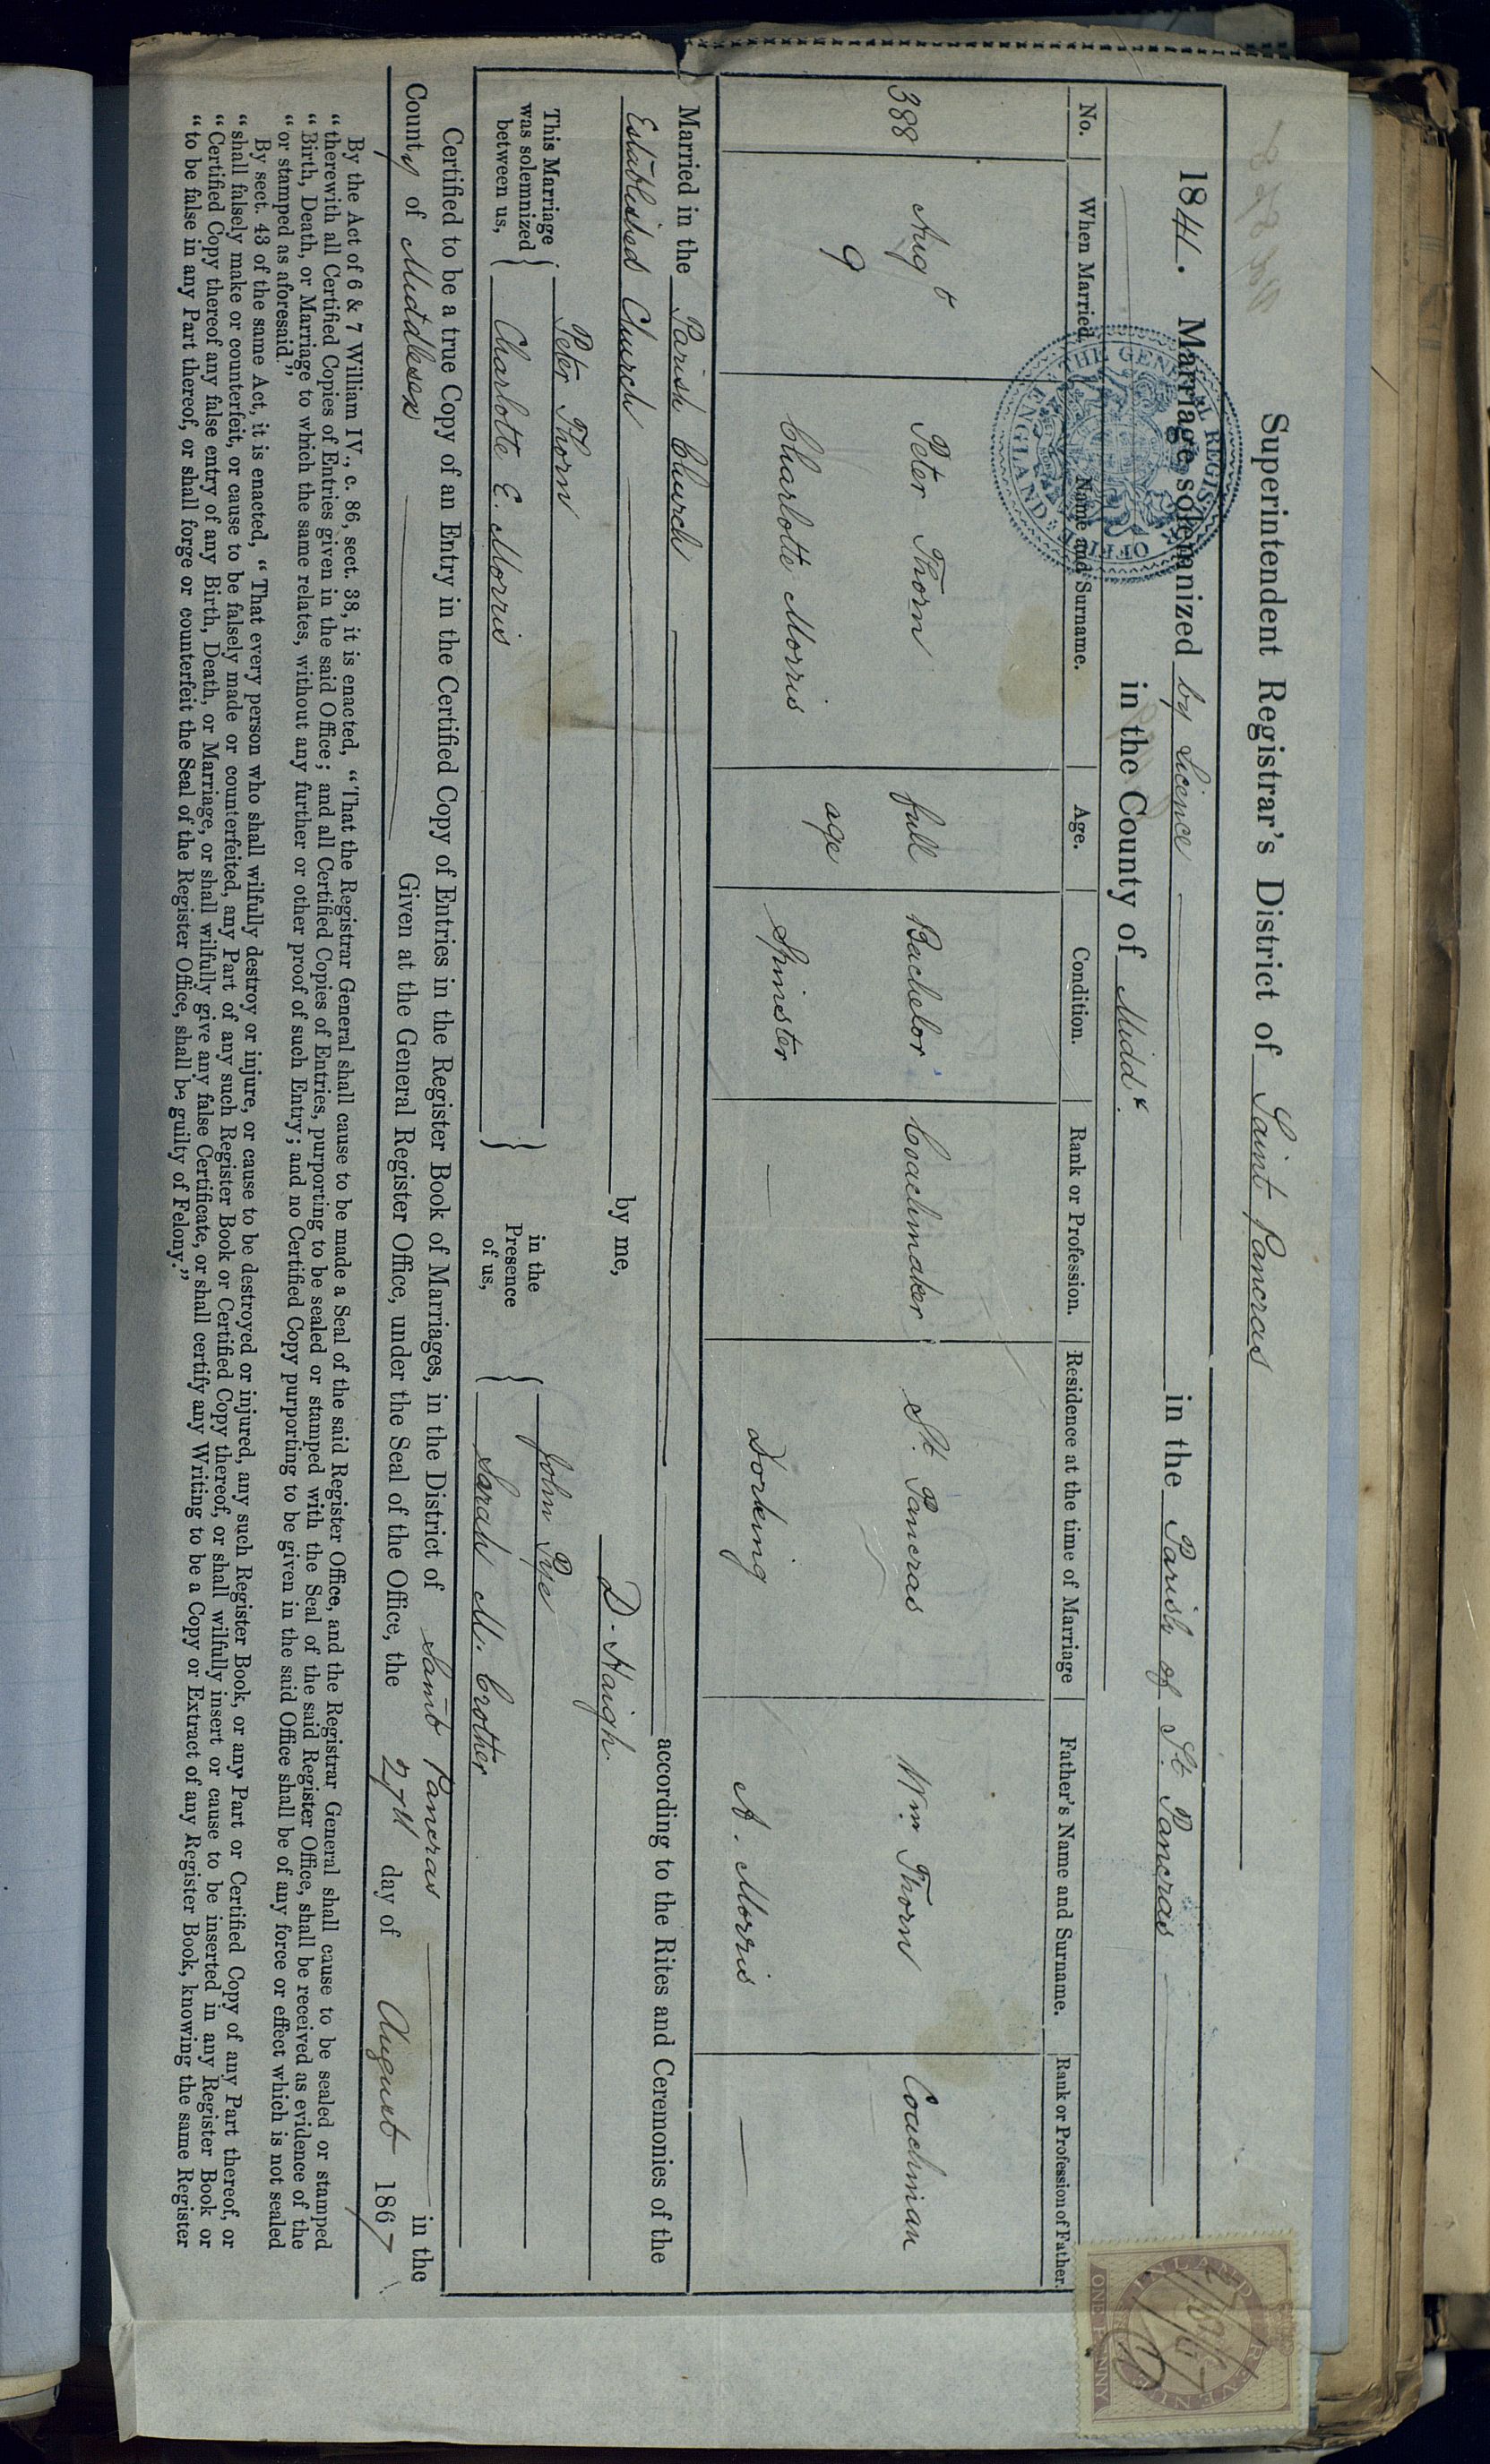 Superintendent Registrar's District of Saint Pancras
1841. Marriage solemnized by Licence in the Parish of St. Pancras
in the County of Middx.
No. When Married. Name and Surname. Age. Condition. Rank or Profession. Residence at the time of Marriage Father's Name and Surname. Rank or Profession of Father.
388 Augt Peter Thorn full Bachelor Coachmaker St. Pancras Wm. Thorn Coachman
9 Charlotte Morris age Spinster — Dorking A. Morris —
THE GENERAL REGISTER OFFICE ENGLAND
Married in the Parish Church according to the Rites and Ceremonies of the
Established Church by me, D. Haigh.
This Marriage
was solemnized
between us,
Peter Thorn
Charlotte E. Morris
in the
Presence
of us,
John Pye
Sarah M. Crother
Certified to be a true Copy of an Entry in the Certified Copy of Entries in the Register Book of Marriages, in the District of Saint Pancras in the
County of Middlesex Given at the General Register Office, under the Seal of the Office, the 27th day of August 1867
By the Act of 6 & 7 William IV., c. 86, sect. 38, it is enacted, "That the Registrar General shall cause to be made a Seal of the said Register Office, and the Registrar General shall cause to be sealed or stamped
"therewith all Certified Copies of Entries given in the said Office; and all Certified Copies of Entries, purporting to be sealed or stamped with the Seal of the said Register Office, shall be received as evidence of the
"Birth, Death, or Marriage to which the same relates, without any further or other proof of such Entry; and no Certified Copy purporting to be given in the said Office shall be of any force or effect which is not sealed
"or stamped as aforesaid."
By sect. 43 of the same Act, it is enacted, "That every person who shall wilfully destroy or injure, or cause to be destroyed or injured, any such Register Book, or any Part or Certified Copy of any Part thereof, or
"shall falsely make or counterfeit, or cause to be falsely made or counterfeited, any Part of any such Register Book or Certified Copy thereof, or shall wilfully insert or cause to be inserted in any Register Book or
"Certified Copy thereof any false entry of any Birth, Death, or Marriage, or shall wilfully give any false Certificate, or shall certify any Writing to be a Copy or Extract of any Register Book, knowing the same Register
"to be false in any Part thereof, or shall forge or counterfeit the Seal of the Register Office, shall be guilty of Felony."
INLAND REVENUE
ONE PENNY